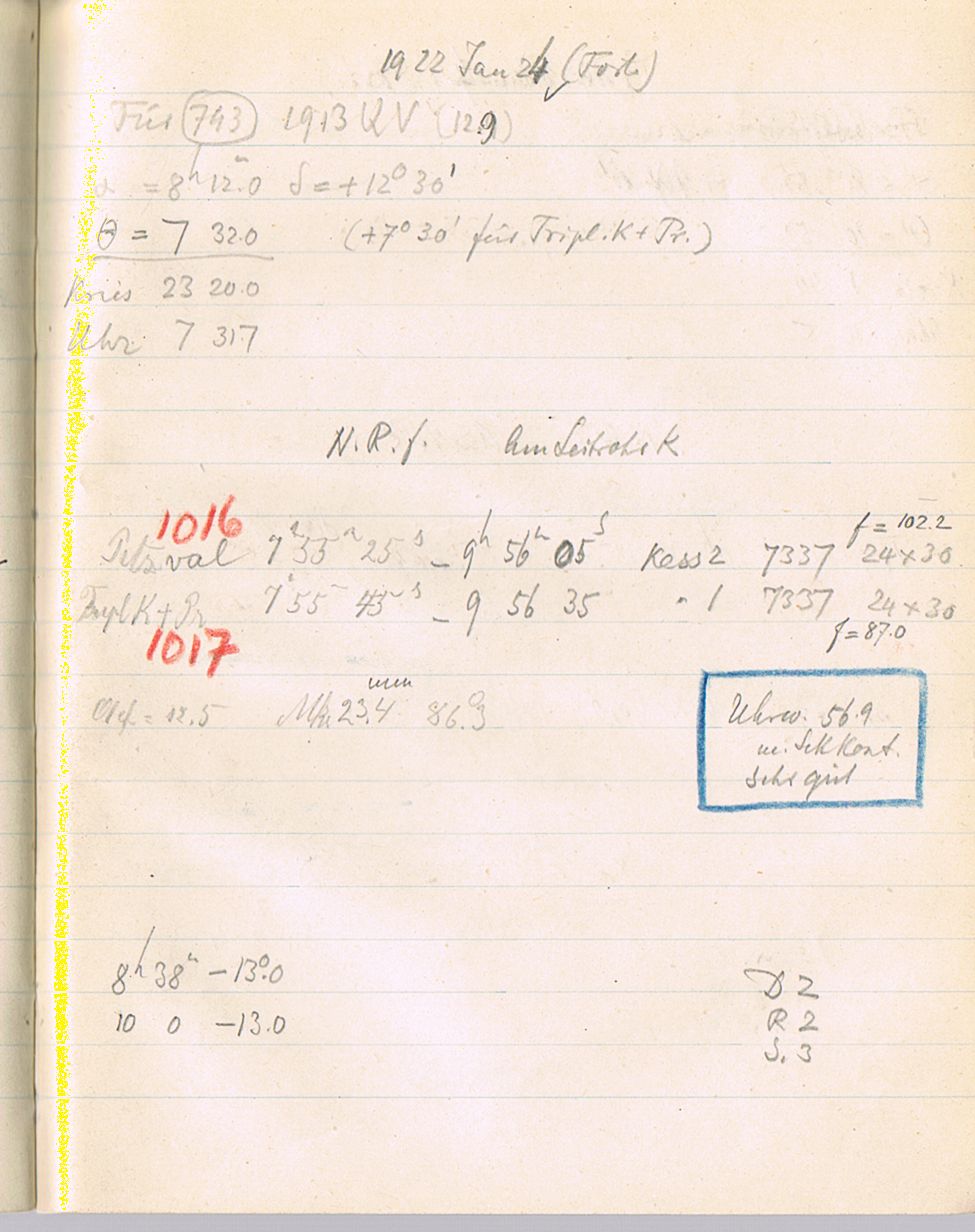 1922 Jan 24 (Forts.)
Für (743) 1913 QV (12.9)
α = 8h 12.0 δ = +12° 30'
θ = 7 32.0 (+7° 30' für Tripl. K + Pr.)
Kreis 23 20.0
Uhr 7 31.7
N. R. f. Am Leitrohr K
1016
f = 102.2
Petzval 7h 55m 25s – 9h 56m 05s Kass 2 7337 24 × 30
Tripl K + Pr 7h 55m 45s – 9 56 35 " 1 7337 24 × 30
1017
f = 87.0
mm
= 12.5 23.4 86.3
Uhrw. 56.9
m. Sek Kont.
sehr gut
8h 38m –13°.0
10 0 –13.0
D 2
R 2
S. 3